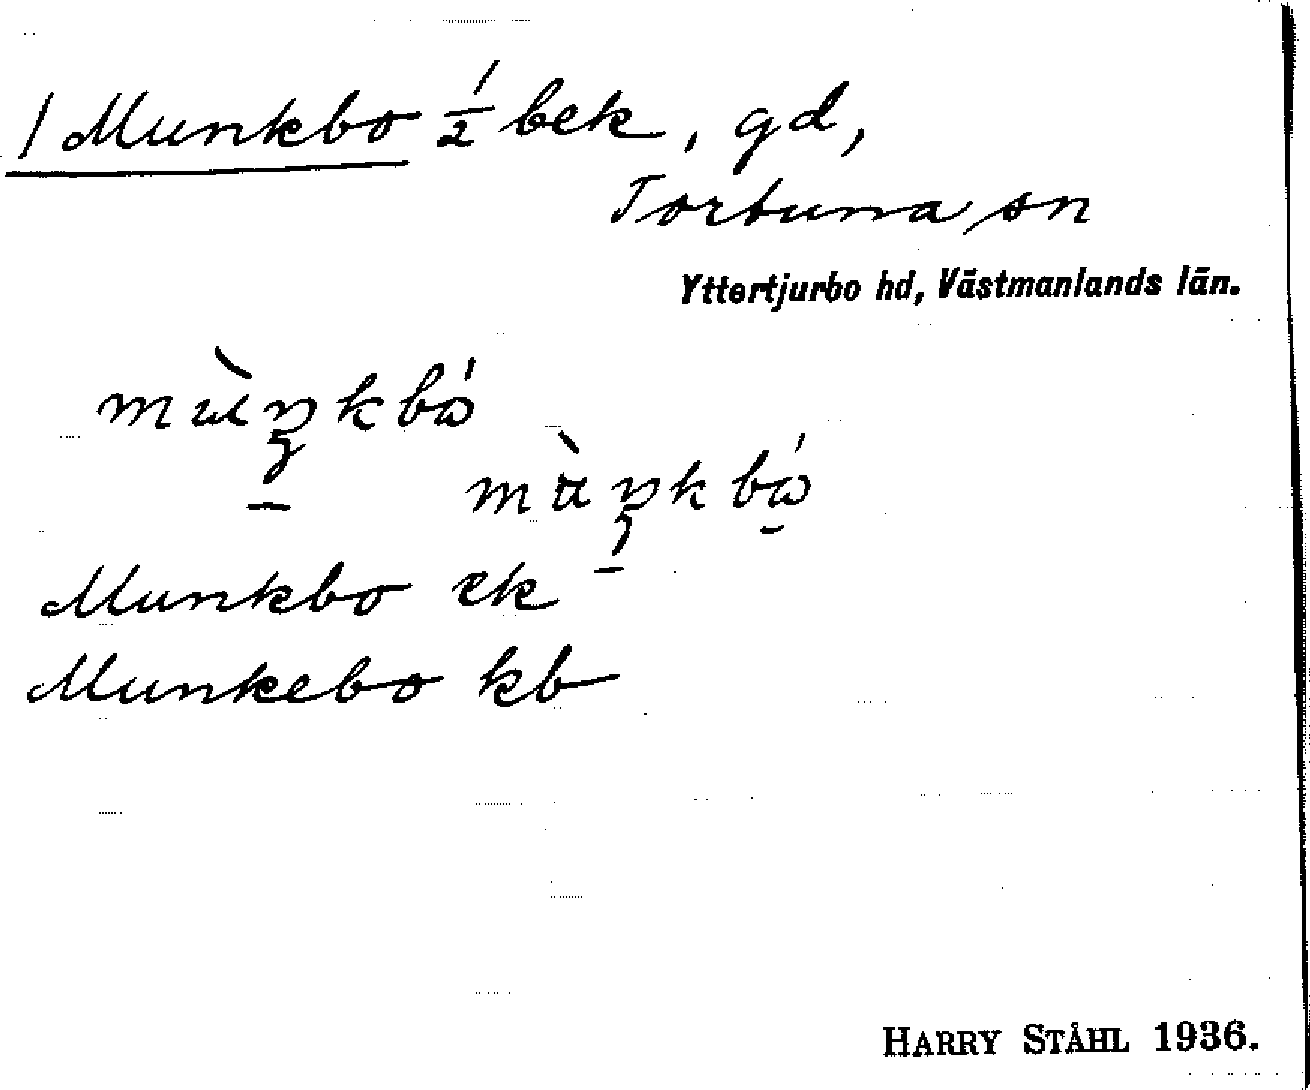 / Munkbo 1/2 bek, gd,
Tortuna sn
Yttertjurbo hd, Västmanlands län.
Munkbo ek
Munkebo kb
HARRY STÅHL 1936.